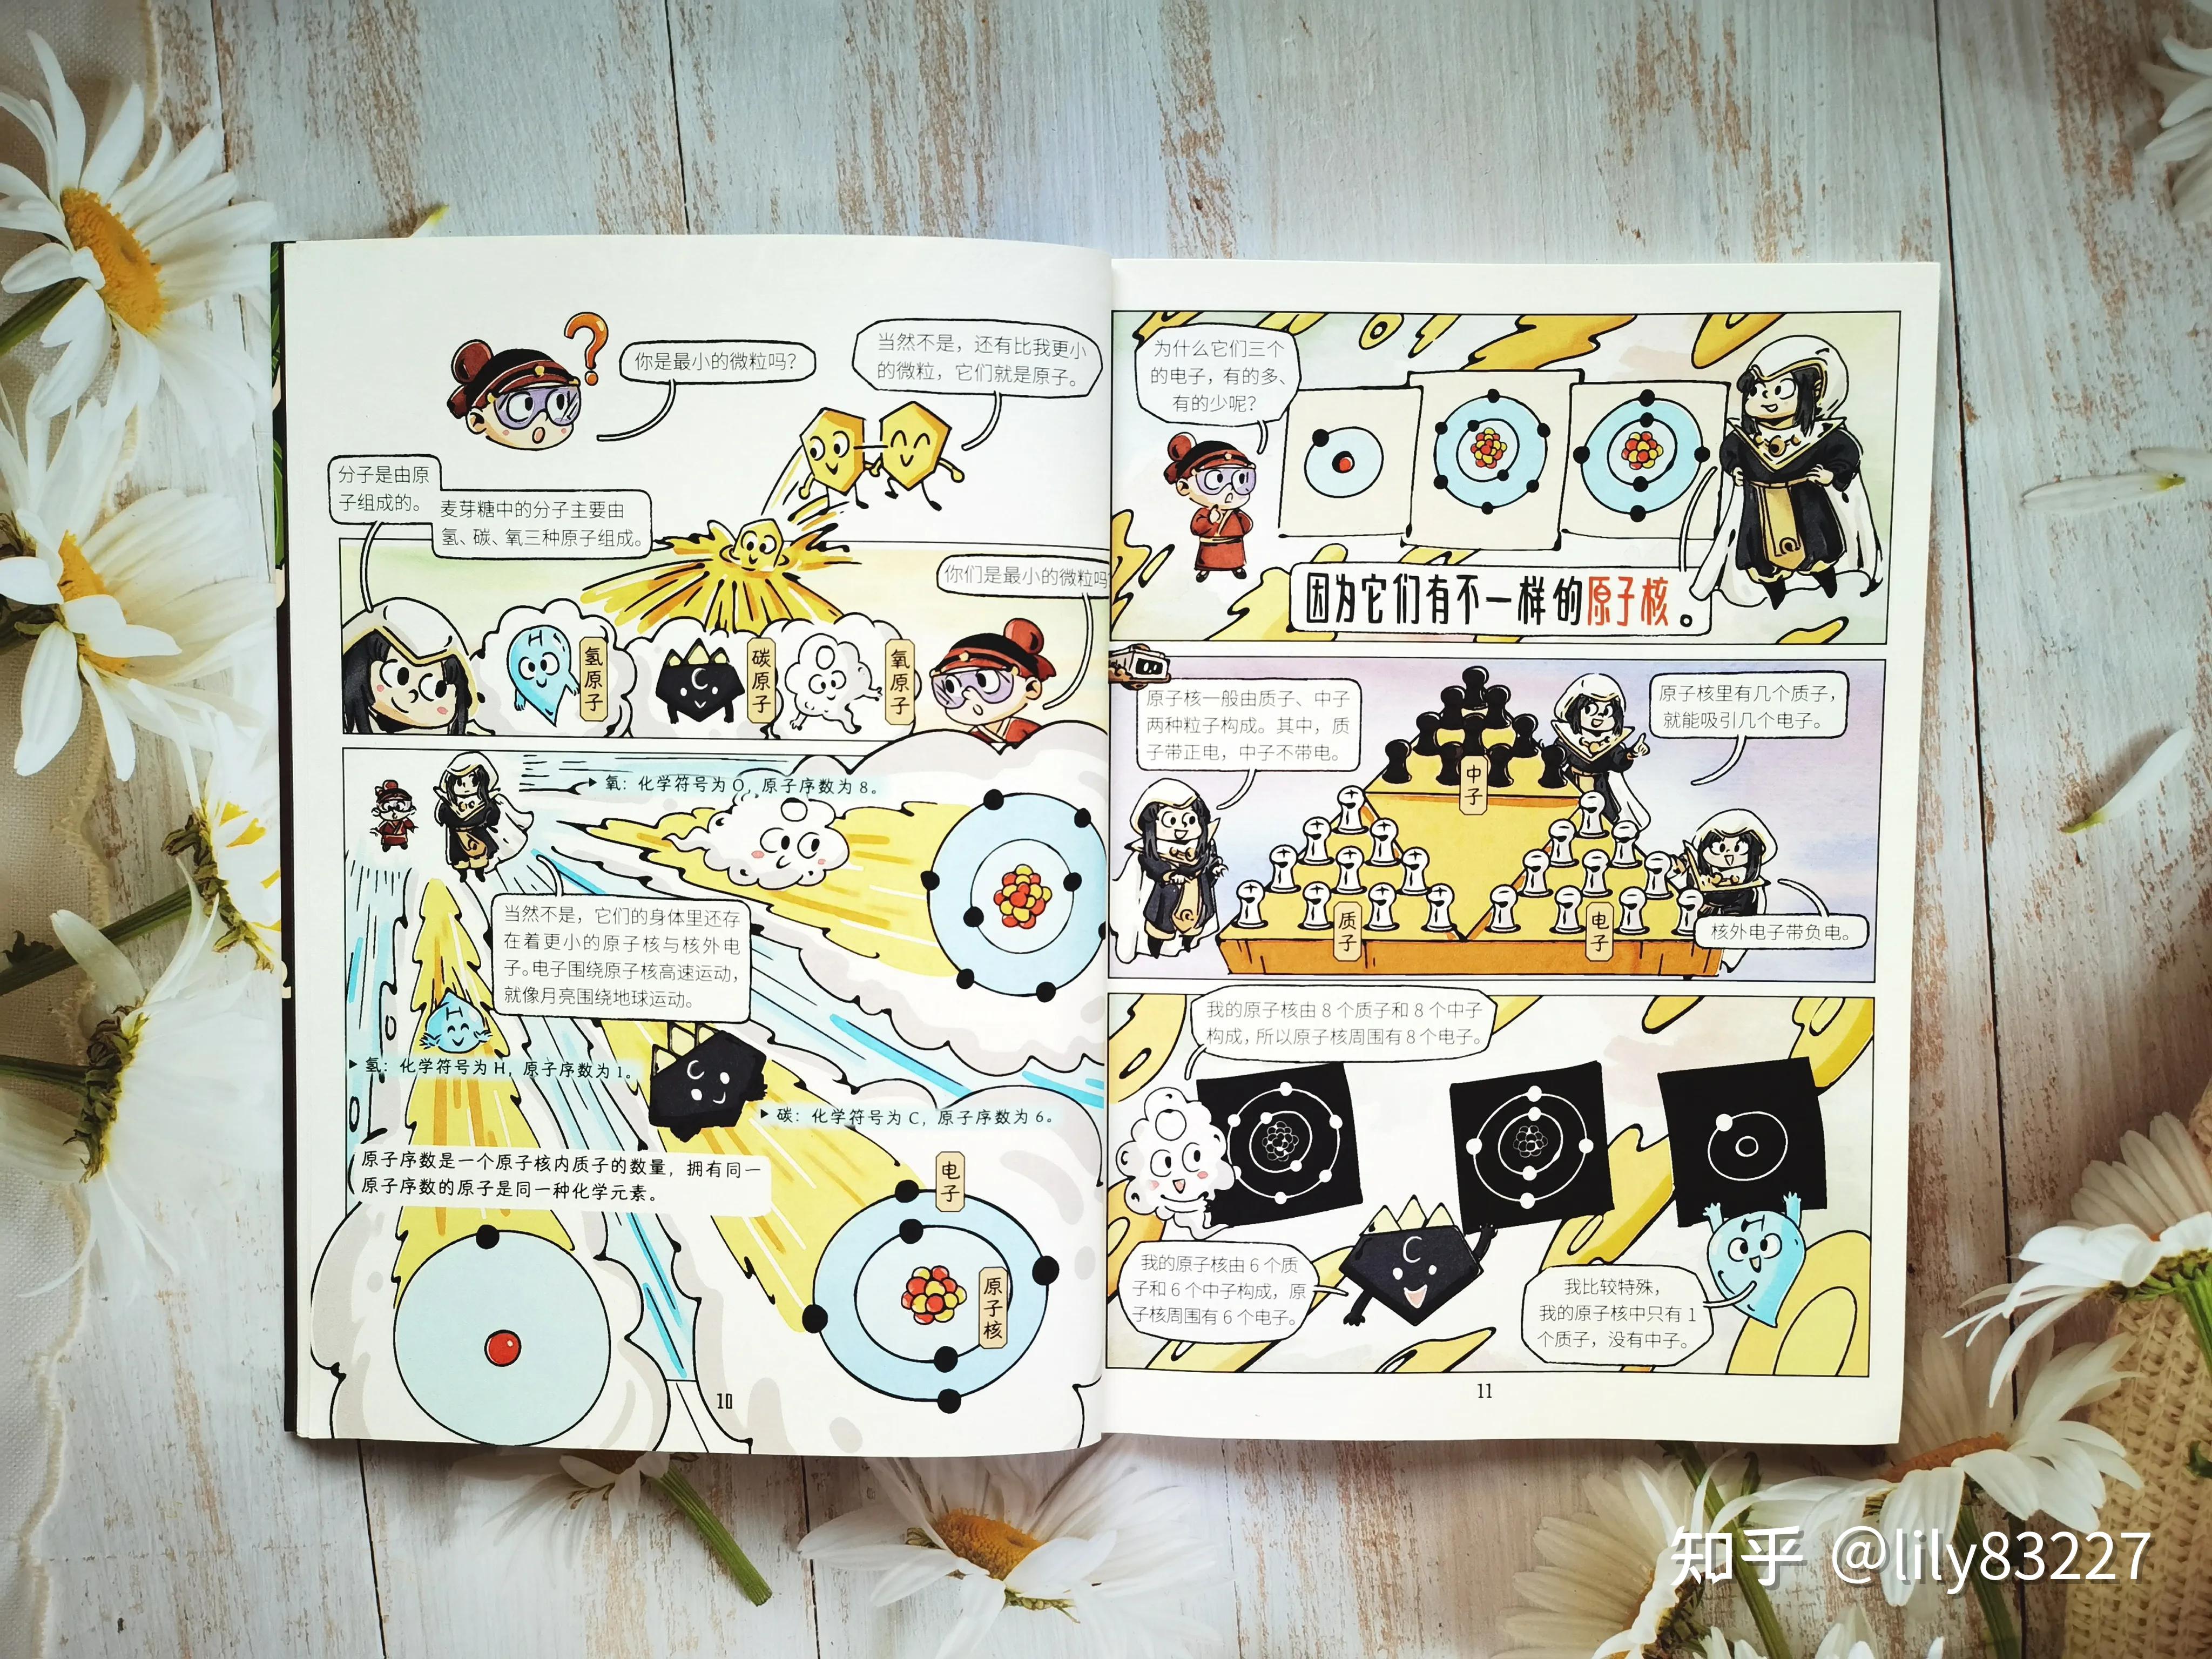 你是最小的微粒吗?
当然不是，还有比我更小
的微粒，它们就是原子。
分子是由原
子组成的。
麦芽糖中的分子主要由
氢、碳、氧三种原子组成。
你们是最小的微粒吗
H
氢原子
C
碳原子
氧原子
氧：化学符号为 O，原子序数为 8。
当然不是，它们的身体里还存
在着更小的原子核与核外电
子。电子围绕原子核高速运动，
就像月亮围绕地球运动。
H
氢：化学符号为 H，原子序数为 1。
C
碳：化学符号为 C，原子序数为 6。
原子序数是一个原子核内质子的数量，拥有同一
原子序数的原子是同一种化学元素。
电子
原子核
10
为什么它们三个
的电子，有的多、
有的少呢?
因为它们有不一样的原子核。
原子核一般由质子、中子
两种粒子构成。其中，质
子带正电，中子不带电。
原子核里有几个质子，
就能吸引几个电子。
中子
质子
电子
核外电子带负电。
我的原子核由 8 个质子和 8 个中子
构成，所以原子核周围有 8 个电子。
C
H
我的原子核由 6 个质
子和 6 个中子构成，原
子核周围有 6 个电子。
我比较特殊，
我的原子核中只有 1
个质子，没有中子。
11
知乎 @lily83227